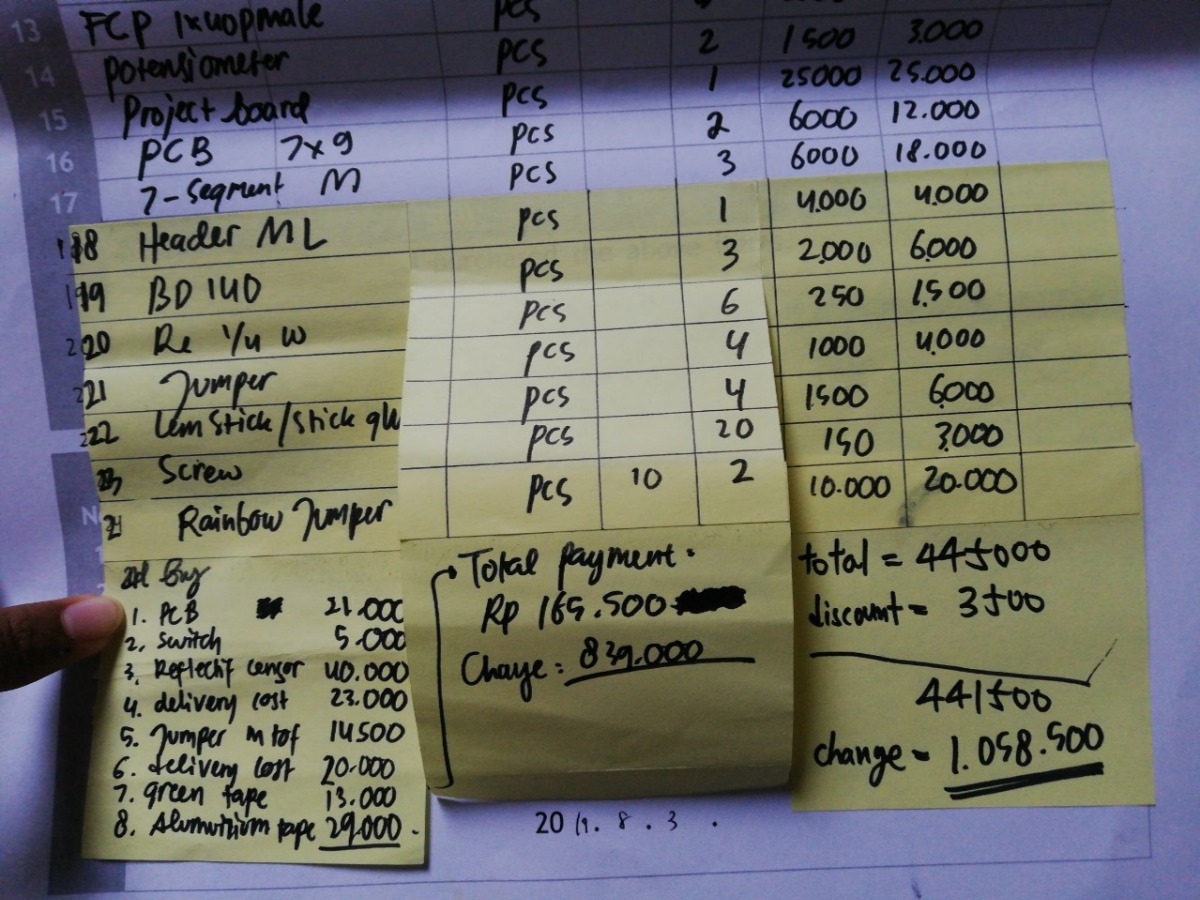 13 FCP 1x40pmale pcs
14 potensiometer pcs 2 1500 3.000
15 Project board pcs 1 25000 25.000
16 PCB 7x9 pcs 2 6000 12.000
17 7-Segment M pcs 3 6000 18.000
18 Header ML pcs 1 4.000 4.000
19 BD 140 pcs 3 2.000 6.000
20 Re 1/4 w pcs 6 250 1.500
21 Jumper pcs 4 1000 4.000
22 Lem Stick/Stick glu pcs 4 1500 6.000
23 Screw pcs 20 150 3.000
Rainbow Jumper pcs 10 2 10.000 20.000
Buy
1. PCB 21.000
2. Switch 5.000
3. Reflectif censor 40.000
4. delivery cost 23.000
5. Jumper m tof 14500
6. delivery cost 20.000
7. green tape 13.000
8. Alumunium tape 29.000
Total payment:
Rp 165.500
Change: 839.000
total = 445000
discount = 3500
441500
change = 1.058.500
20 19. 8. 3.